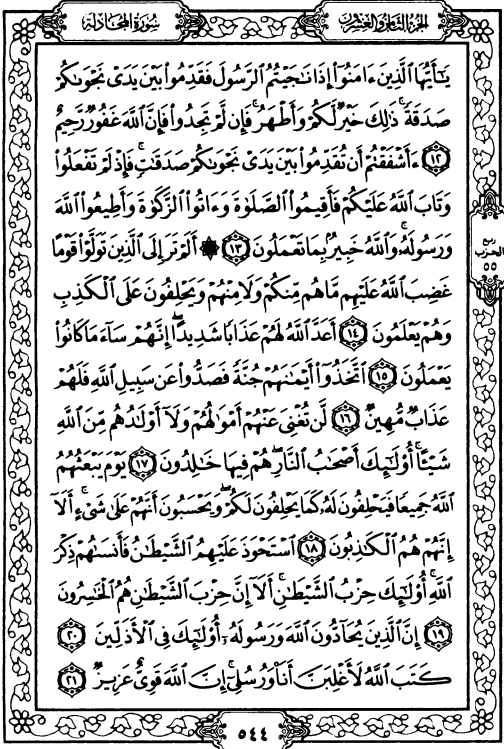 الجزء الثامن والعشرون
سورة المجادلة
يَـٰٓأَيُّهَا ٱلَّذِينَ ءَامَنُوٓا۟ إِذَا نَـٰجَيْتُمُ ٱلرَّسُولَ فَقَدِّمُوا۟ بَيْنَ يَدَىْ نَجْوَىٰكُمْ
صَدَقَةً ۚ ذَٰلِكَ خَيْرٌ لَّكُمْ وَأَطْهَرُ ۚ فَإِن لَّمْ تَجِدُوا۟ فَإِنَّ ٱللَّهَ غَفُورٌ رَّحِيمٌ
﴿١٢﴾ ءَأَشْفَقْتُمْ أَن تُقَدِّمُوا۟ بَيْنَ يَدَىْ نَجْوَىٰكُمْ صَدَقَـٰتٍ ۚ فَإِذْ لَمْ تَفْعَلُوا۟
وَتَابَ ٱللَّهُ عَلَيْكُمْ فَأَقِيمُوا۟ ٱلصَّلَوٰةَ وَءَاتُوا۟ ٱلزَّكَوٰةَ وَأَطِيعُوا۟ ٱللَّهَ
وَرَسُولَهُۥ ۚ وَٱللَّهُ خَبِيرٌۢ بِمَا تَعْمَلُونَ ﴿١٣﴾ ۞ أَلَمْ تَرَ إِلَى ٱلَّذِينَ تَوَلَّوْا۟ قَوْمًا
غَضِبَ ٱللَّهُ عَلَيْهِم مَّا هُم مِّنكُمْ وَلَا مِنْهُمْ وَيَحْلِفُونَ عَلَى ٱلْكَذِبِ
وَهُمْ يَعْلَمُونَ ﴿١٤﴾ أَعَدَّ ٱللَّهُ لَهُمْ عَذَابًا شَدِيدًا ۖ إِنَّهُمْ سَآءَ مَا كَانُوا۟
يَعْمَلُونَ ﴿١٥﴾ ٱتَّخَذُوٓا۟ أَيْمَـٰنَهُمْ جُنَّةً فَصَدُّوا۟ عَن سَبِيلِ ٱللَّهِ فَلَهُمْ
عَذَابٌ مُّهِينٌ ﴿١٦﴾ لَّن تُغْنِىَ عَنْهُمْ أَمْوَٰلُهُمْ وَلَآ أَوْلَـٰدُهُم مِّنَ ٱللَّهِ
شَيْـًٔا ۚ أُو۟لَـٰٓئِكَ أَصْحَـٰبُ ٱلنَّارِ ۖ هُمْ فِيهَا خَـٰلِدُونَ ﴿١٧﴾ يَوْمَ يَبْعَثُهُمُ
ٱللَّهُ جَمِيعًا فَيَحْلِفُونَ لَهُۥ كَمَا يَحْلِفُونَ لَكُمْ ۖ وَيَحْسَبُونَ أَنَّهُمْ عَلَىٰ شَىْءٍ ۚ أَلَآ
إِنَّهُمْ هُمُ ٱلْكَـٰذِبُونَ ﴿١٨﴾ ٱسْتَحْوَذَ عَلَيْهِمُ ٱلشَّيْطَـٰنُ فَأَنسَىٰهُمْ ذِكْرَ
ٱللَّهِ ۚ أُو۟لَـٰٓئِكَ حِزْبُ ٱلشَّيْطَـٰنِ ۚ أَلَآ إِنَّ حِزْبَ ٱلشَّيْطَـٰنِ هُمُ ٱلْخَـٰسِرُونَ
﴿١٩﴾ إِنَّ ٱلَّذِينَ يُحَآدُّونَ ٱللَّهَ وَرَسُولَهُۥٓ أُو۟لَـٰٓئِكَ فِى ٱلْأَذَلِّينَ ﴿٢٠﴾
كَتَبَ ٱللَّهُ لَأَغْلِبَنَّ أَنَا۠ وَرُسُلِىٓ ۚ إِنَّ ٱللَّهَ قَوِىٌّ عَزِيزٌ ﴿٢١﴾
ربع
الحزب
٥٥
٥٤٤